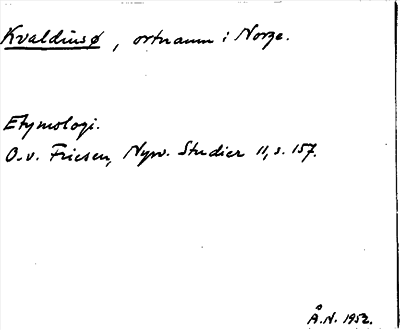 Kvaldinsø, ortnamn i Norge.
Etymologi.
O.v. Friesen, Nysv. Studier 11, s. 157.
Å.N. 1952.